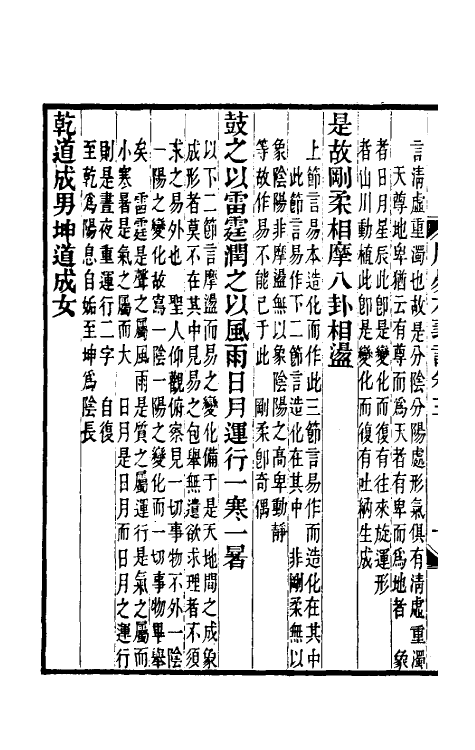 言清虛重濁也故是分陰分陽處形氣俱有清虛重濁
天尊地卑猶云有尊而爲天者有卑而爲地者　象
者日月星辰此卽是變化而復有往來旋運形
者山川動植此卽是變化而復有吐納生成
是故剛柔相摩八卦相盪
上節言易本造化而作此三節言易作而造化在其中
此節言易作下二節言造化在其中　非剛柔無以
象陰陽非摩盪無以象陰陽之高卑動靜
等故作易不能已于此　剛柔卽奇偶
鼓之以雷霆潤之以風雨日月運行一寒一暑
以下二節言摩盪而易之變化備于是天地間之成象
成形者莫不在其中見易之包舉無遺欲求理者不須
求之易外也　聖人仰觀俯察見一切事物不外一陰
一陽之變化故寫一陰一陽之變化而一切事物畢舉
矣　雷霆是聲之屬風雨是質之屬運行是氣之屬而
小寒暑是氣之屬而大　日月是日月而日月之運行
則是晝夜重運行二字　自復
至乾爲陽息自姤至坤爲陰長
乾道成男坤道成女